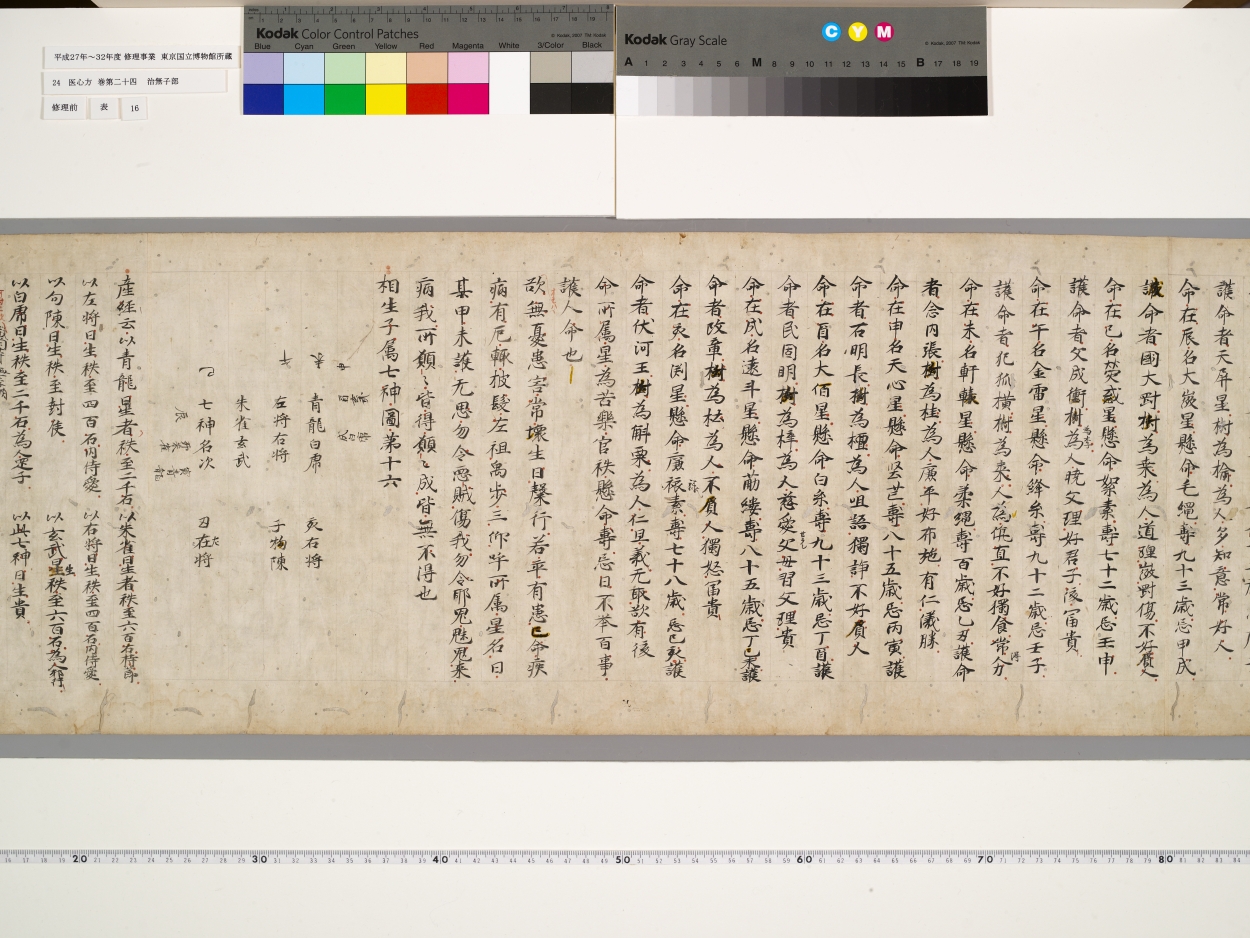 Kodak Color Control Patches
© Kodak, 2007 TM: Kodak
Blue Cyan Green Yellow Red Magenta White 3/Color Black
Kodak Gray Scale
C Y M
© Kodak, 2007 TM: Kodak
A 1 2 3 4 5 6 M 8 9 10 11 12 13 14 15 B 17 18 19
平成27年～32年度 修理事業 東京国立博物館所蔵
24 医心方 巻第二十四 治無子部
修理前 表 16
護命者天屏星樹為楡為人多知意常好人
命在辰名大微星懸命毛縄壽九十三歳忌甲戌
護命者國大對樹為棗為人道理微對傷不好賓人
命在巳名熒惑星懸命絮素壽七十二歳忌壬申
護命者父成衝樹為人暁文理好君子後冨貴
命在午名金雷星懸命絳糸壽九十二歳忌壬子
護命者犯狐横樹為棗人為侫直不好獨食常分
命在未名軒轅星懸命柔縄壽百歳忌乙丑護命
者念内張樹為桂為人廉平好布施有仁儀勝
命在申名天心星懸命堅芒壽八十五歳忌丙寅護
者石明長樹為橿為人咀語獨諍不好賓人
命在酉名大伯星懸命白糸壽九十三歳忌丁酉護
命者民同明樹為梓為人慈愛父母習文理貴
命在戌名遠斗星懸命萠縷壽八十五歳忌丁未護
命者改章樹為松為人不賓人獨怒冨貴
命在亥名渕星懸命廣禄素壽七十八歳忌己亥護
命者伏河王樹為斛粟為人仁且義元取歆有後
命所属星為苦樂官秩懸命壽忌日不举百事
護人命也
欲無憂患害常壊生日槃行若卒有患已命疾
病有厄輙被髪左袒禹歩三仰呼所属星名曰
某甲未護无思勿令悪賊傷我勿令耶鬼魅鬼来
病我所願〻皆得願〻成皆無不得也
相生子属七神圖第十六
青龍白席 亥右将
左将右将 子拘陳
朱雀玄武
七神名次 丑在将
産経云以青龍星者秩至二千石以朱雀星者秩至六百石将郎
以左将日生秩至四百石内侍愛 以右将日生秩至四百石内侍愛
以勾陳日生秩至封侯 以玄武星秩至六百石為
以白席日生秩至二千石為 以此七神日生貴
20 30 40 50 60 70 80